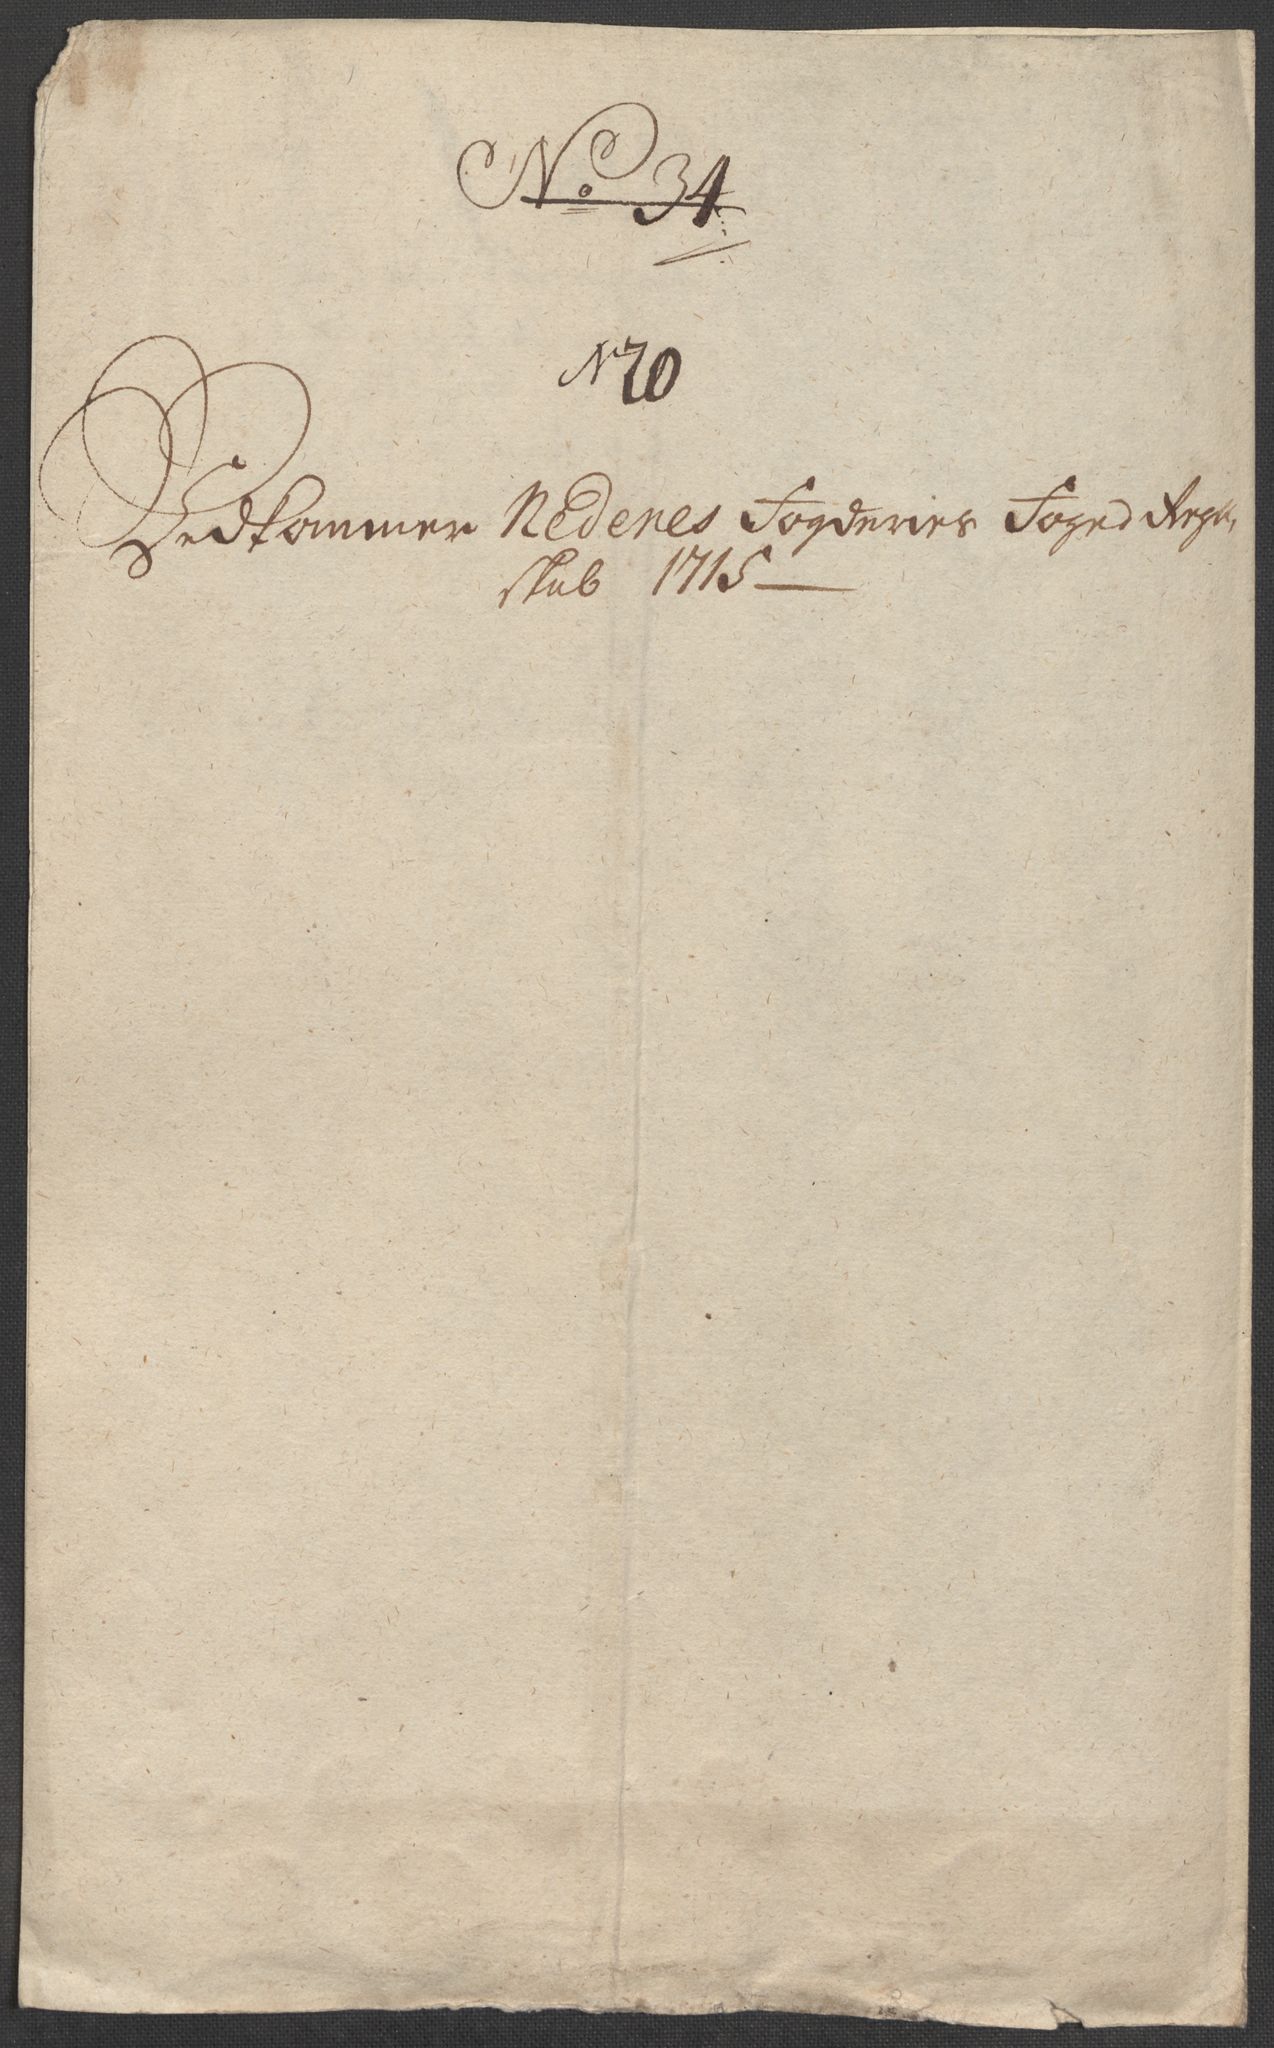 No 34
N 20
Vedkommer Nedenes Fogderies Foged Regn-
skab 1715